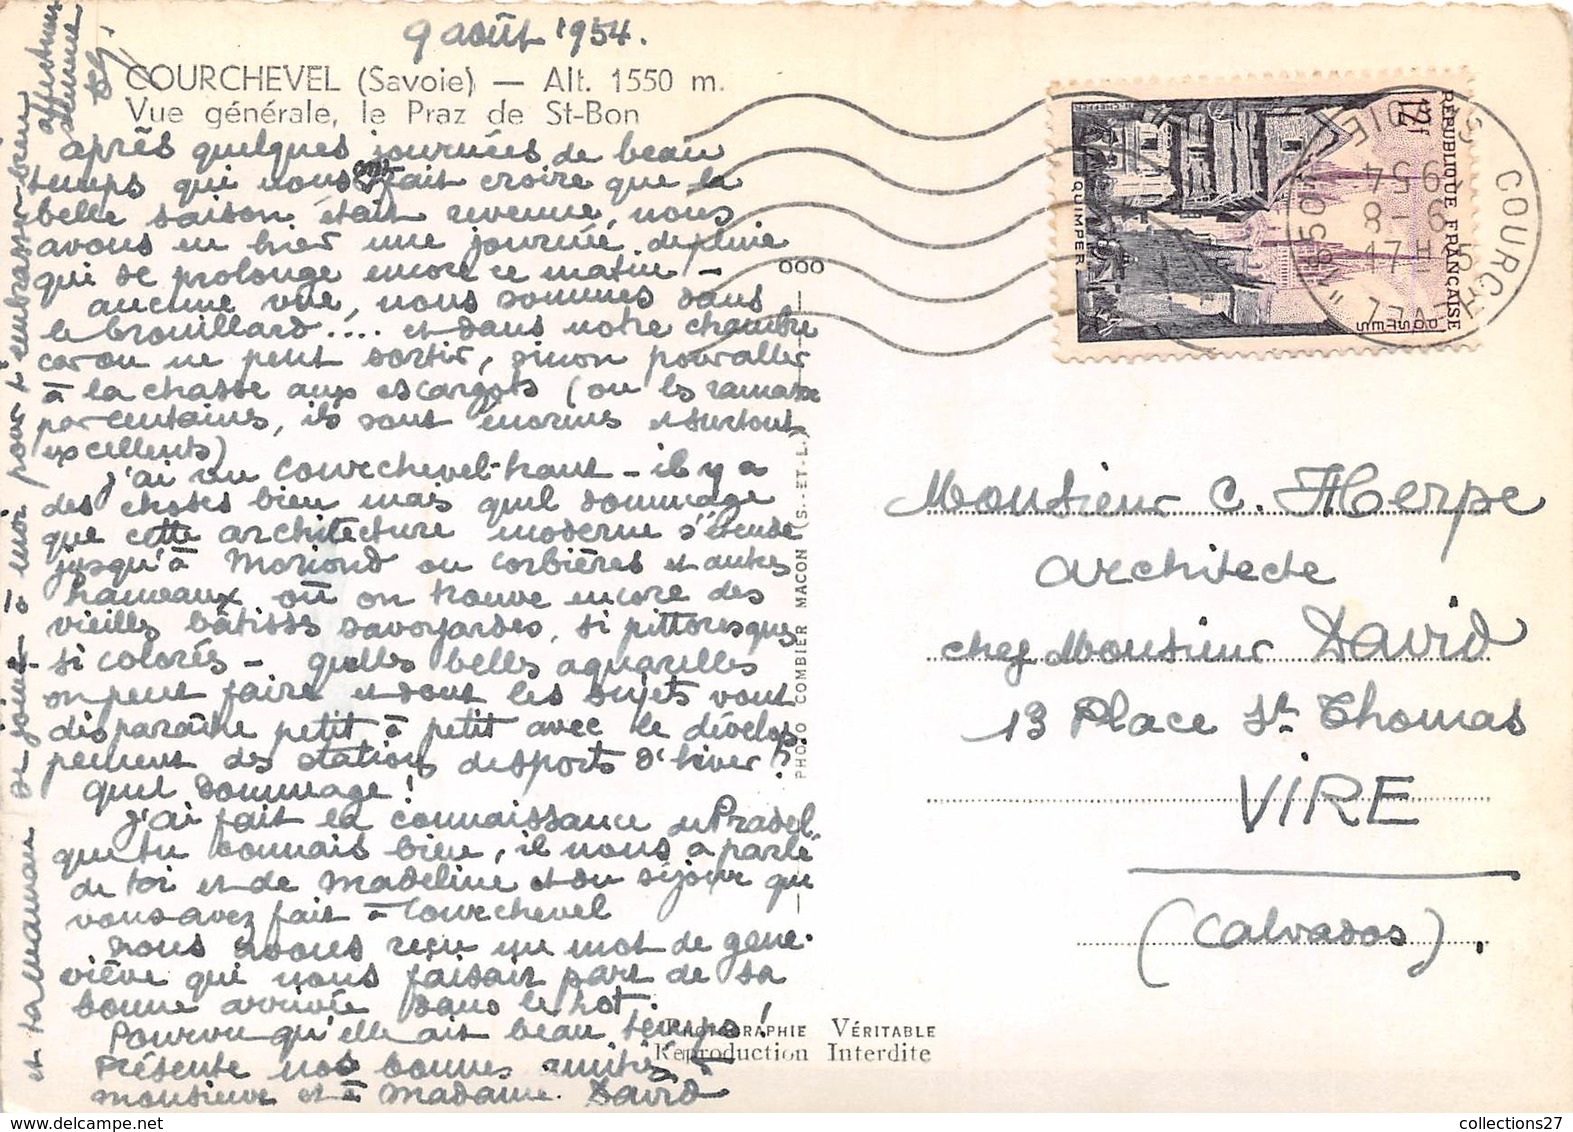 9 août 1954.
COURCHEVEL (Savoie) — Alt. 1550 m.
Vue générale, le Praz de St-Bon
après quelques journées de beau
temps qui nous ont fait croire que la
belle saison était revenue, nous
avons eu hier une journée de pluie
qui se prolonge encore ce matin —
aucune vue, nous sommes dans
le brouillard.... et dans notre chambre
car on ne peut sortir, sinon pour aller
à la chasse aux escargots (on les ramasse
par centaines, ils sont énormes et surtout
excellents)
J'ai vu Courchevel-haut — il y a
des choses bien mais quel dommage
que cette architecture moderne s'étende
jusqu'à Moriond ou Corbières et autres
hameaux où on trouve encore des
vieilles bâtisses savoyardes, si pittoresques
si colorés — quelles belles aquarelles
on peut faire et dont les sujets vont
disparaître petit à petit avec le dévelop-
pement des stations de sports d'hiver !
quel dommage !
J'ai fait la connaissance de Pradel
que tu connais bien, il nous a parlé
de toi et de Madeline et du séjour que
vous avez fait à Courchevel
nous avons reçu un mot de gene-
viève qui nous faisait part de sa
bonne arrivée dans le Lot.
Pourvu qu'elle ait beau temps !
Présente nos bonnes amitiés à
monsieur et à Madame David
et ta maman se joint à moi pour t'embrasser bien
affectueu
sement
PHOTO COMBIER MACON (S.-ET-L.)
PHOTOGRAPHIE VÉRITABLE
Reproduction Interdite
RÉPUBLIQUE FRANÇAISE
POSTES
12f
QUIMPER
COURCHEVEL
SAVOIE
17H15
9-8
1954
Monsieur C. Herpe
architecte
chez Monsieur David
13 Place St Thomas
VIRE
(Calvados).
collections27